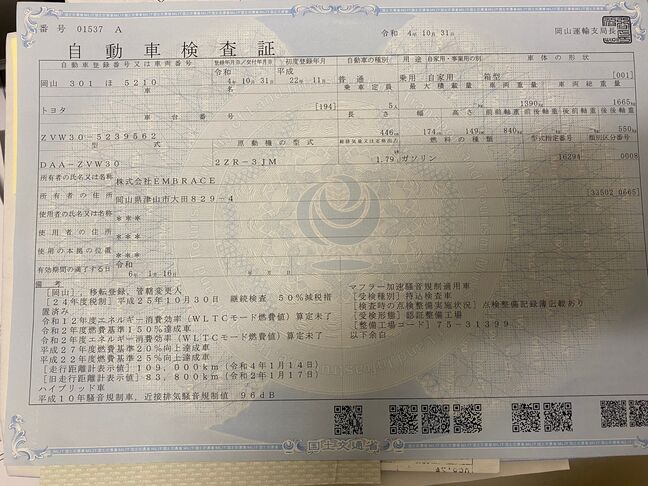 番 号 01537 A
令和 4年10月31日
岡山運輸支局長
自 動 車 検 査 証
自動車登録番号又は車両番号 登録年月日/交付年月日 初度登録年月 自動車の種別 用途 自家用・事業用の別 車体の形状
岡山 301 ほ 5210 令和 4年10月31日 平成 22年11月 普通 乗用 自家用 箱型 [001]
車 名 乗車定員 最大積載量 車両重量 車両総重量
トヨタ [194] 5人 －kg 1390kg 1665kg
車 台 番 号 長さ 幅 高さ 前前軸重 前後軸重 後前軸重 後後軸重
ZVW30-5239562 446cm 174cm 149cm 840kg －kg －kg 550kg
型 式 原動機の型式 総排気量又は定格出力 燃料の種類 型式指定番号 類別区分番号
DAA-ZVW30 2ZR-3JM 1.79 ガソリン 16294 0008
所有者の氏名又は名称 株式会社EMBRACE
所有者の住所 岡山県津山市大田829-4 [33502 0665]
使用者の氏名又は名称 ***
使用者の住所 ***
使用の本拠の位置 ***
有効期間の満了する日 令和 6年 1月16日
備考
[岡山]，移転登録，管轄変更人
[24年度税制] 平成25年10月30日 継続検査 50%減税措
置済み
令和12年度エネルギー消費効率（WLTCモード燃費値）算定未了
令和2年度燃費基準150%達成車
令和2年度エネルギー消費効率（WLTCモード燃費値）算定未了
平成27年度燃費基準20%向上達成車
平成22年度燃費基準25%向上達成車
[走行距離計表示値] 109,000km（令和4年1月14日）
[旧走行距離計表示値] 83,800km（令和2年1月17日）
ハイブリッド車
平成10年騒音規制車，近接排気騒音規制値 96dB
マフラー加速騒音規制適用車
[受検種別] 持込検査車
[検査時の点検整備実施状況] 点検整備記録簿記載あり
[受検形態] 認証整備工場
[整備工場コード] 75-31399
以下余白
国土交通省